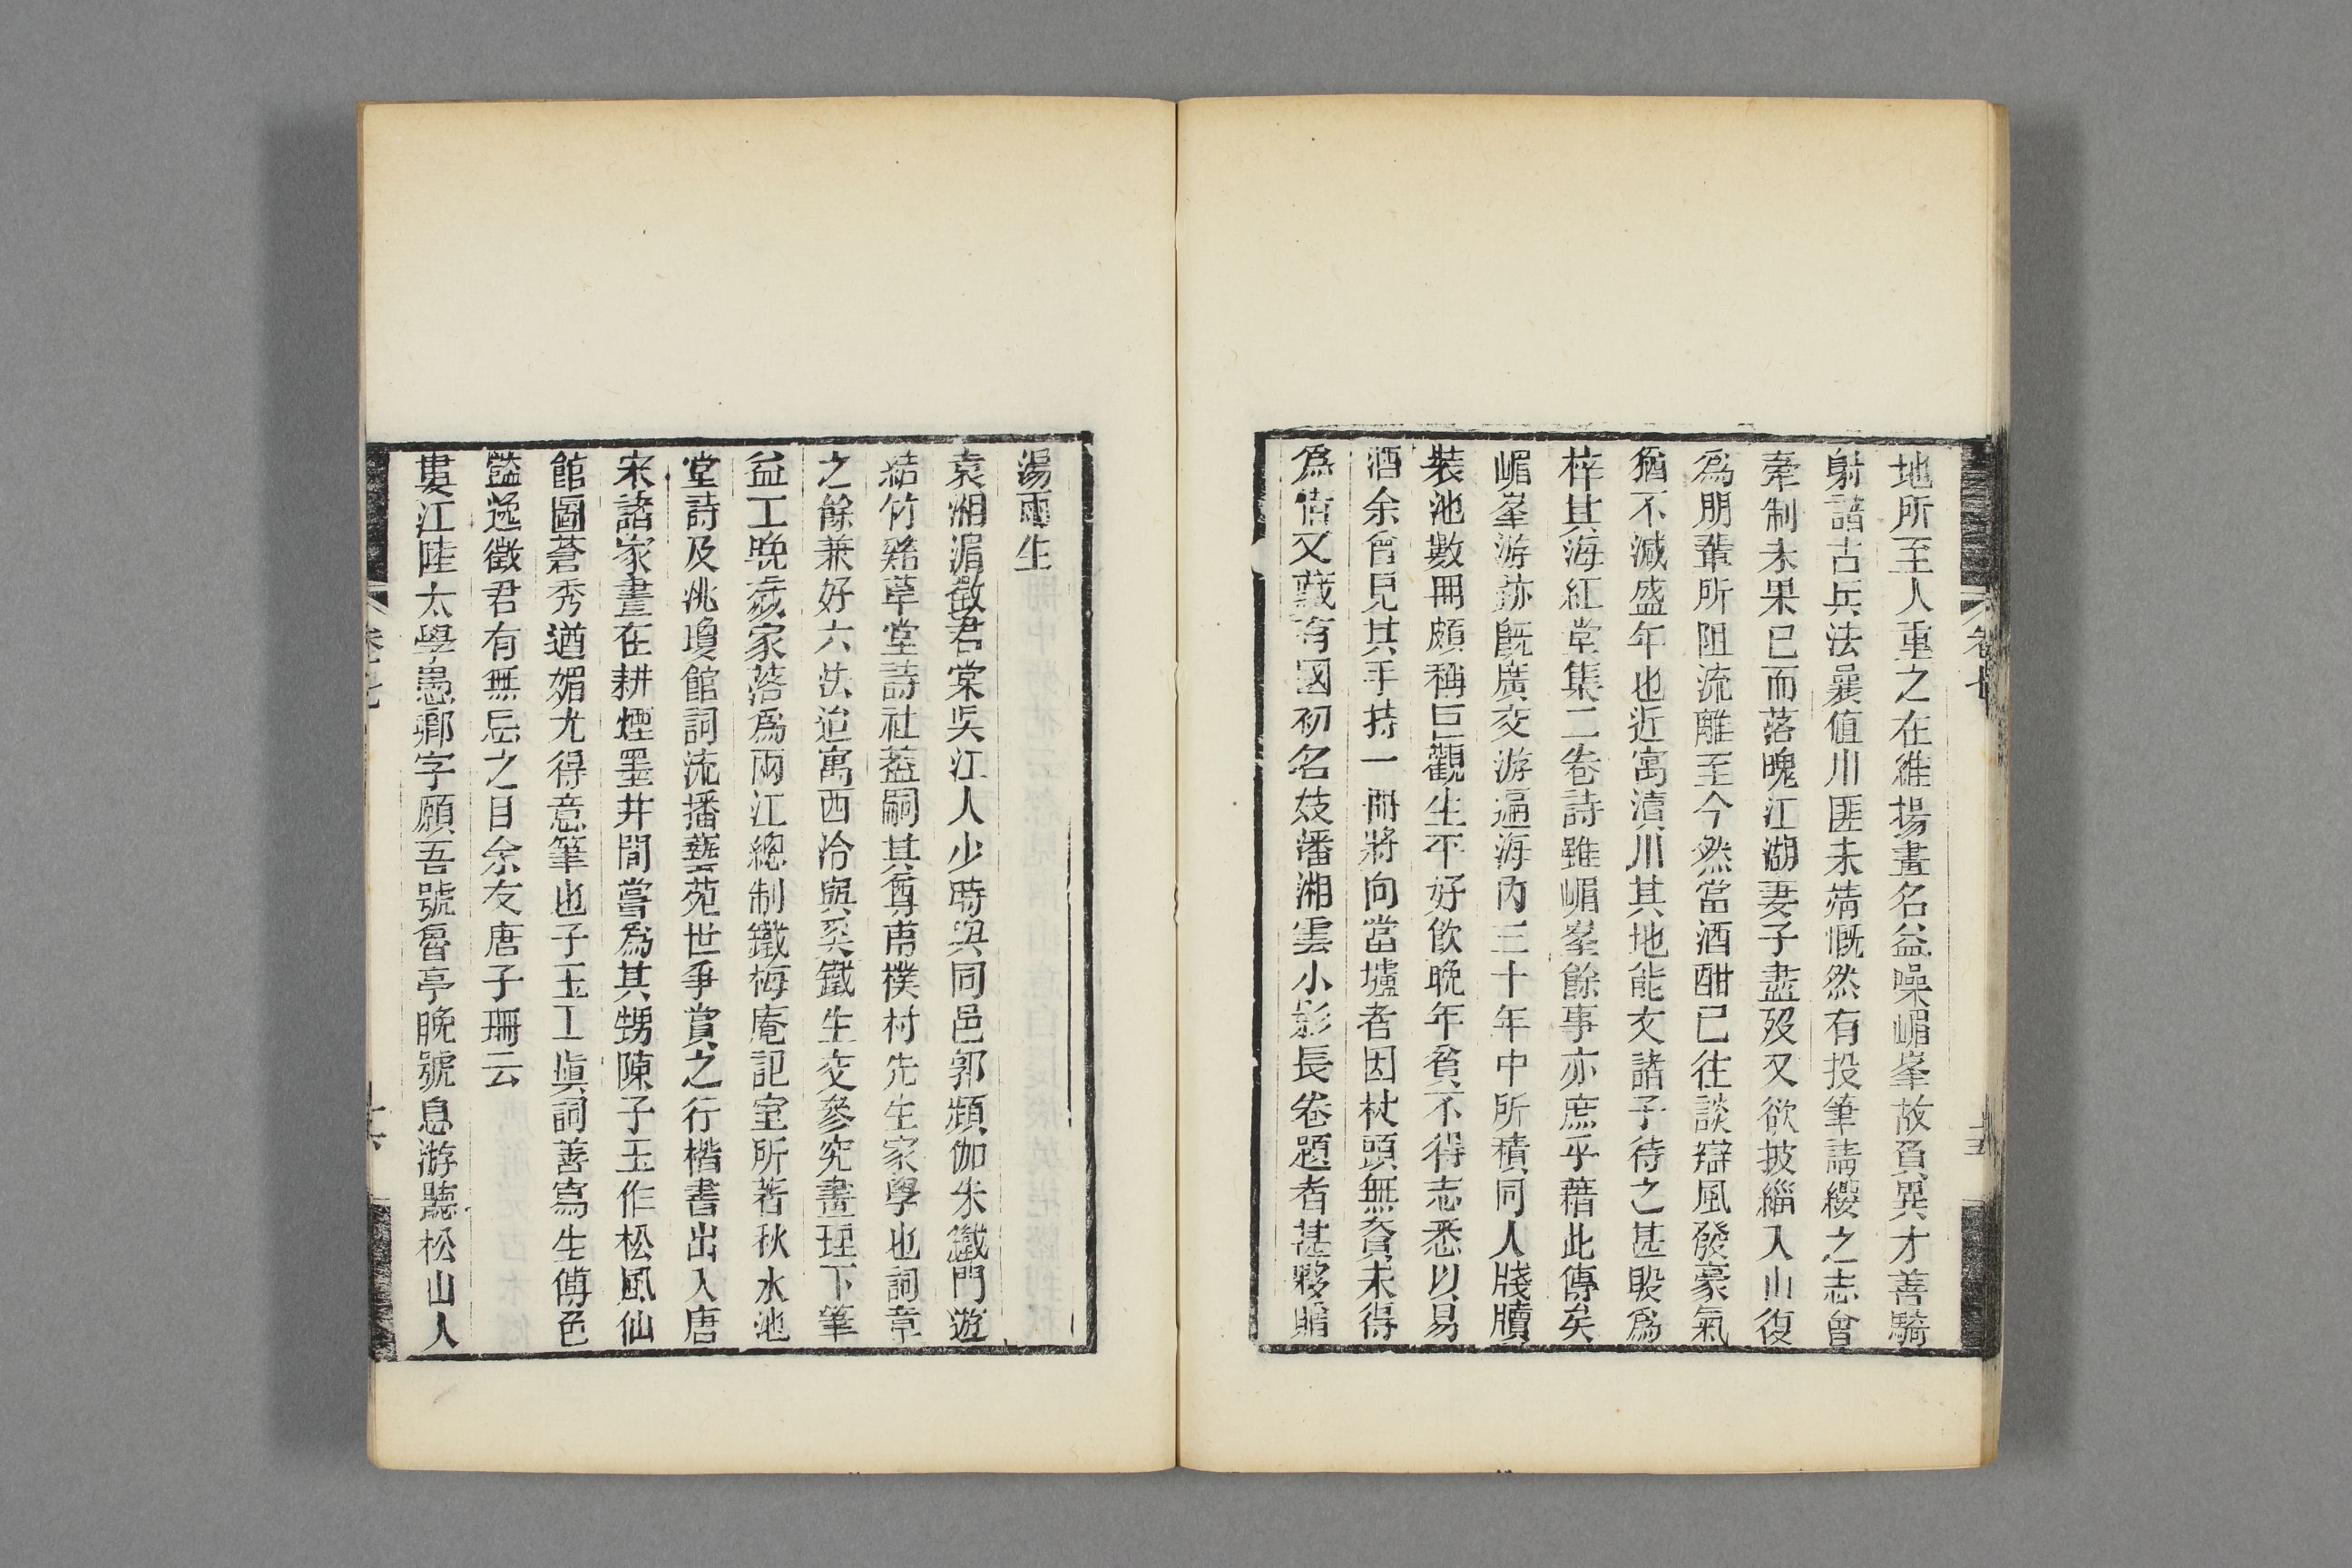 地所至人重之在維揚畫名益噪嵋峯故負異才善騎
射諳古兵法曩值川匪未靖慨然有投筆請纓之志會
牽制未果已而落魄江湖妻子盡歿又欲披緇入山復
爲朋輩所阻流離至今然當酒酣已往談辯風發豪氣
猶不減盛年也近寓瀆川其地能文諸子待之甚殷爲
梓其海紅堂集二卷詩雖嵋峯餘事亦庶乎藉此傳矣
嵋峯游跡旣廣交游逼海內三十年中所積同人牋牘
裝池數冊頗稱巨觀生平好飲晚年貧不得志悉以易
酒余曾見其手持一冊將向當壚者因杖頭無貲未得
爲 又藏有國初名妓潘湘雲小影長卷題者甚夥贈
卷七
十五
湯雨生
袁湘湄徵君棠吳江人少時與同邑郭頻伽朱鐵門遊
結竹谿草堂詩社葢嗣其尊甫樸村先生家學也詞章
之餘兼好六法迨寓西泠與奚鐵生交參究畫理下筆
益工晚歲家落爲兩江總制鐵梅庵記室所著秋水池
堂詩及洮瓊館詞流播藝苑世爭賞之行楷書出入唐
宋諸家畫在耕煙墨井間嘗爲其甥陳子玉作松風仙
館圖蒼秀遒媚尤得意筆也子玉工塡詞善寫生傅色
豔逸徵君有無忌之目余友唐子珊云
婁江陸太學愚卿字願吾號魯亭晚號息游聽松山人
卷七
十六